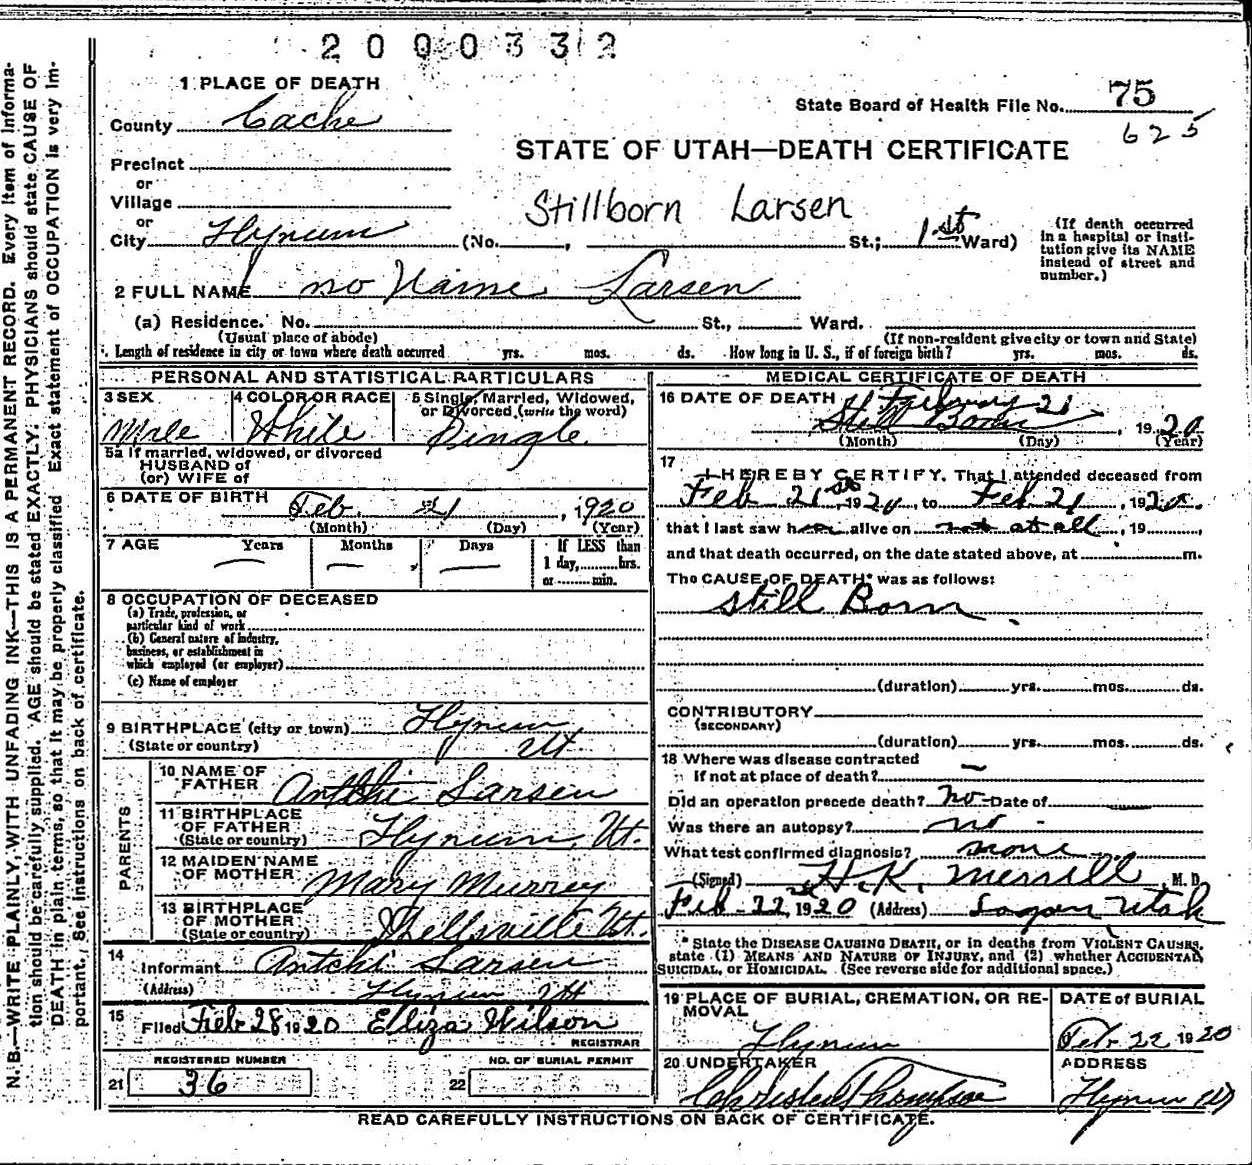 2000332
1 PLACE OF DEATH
State Board of Health File No. 75
County Cache
625
STATE OF UTAH—DEATH CERTIFICATE
Precinct
or
Village
Stillborn Larsen
or
City Hyrum (No. , St.; 1st Ward)
(If death occurred in a hospital or institution give its NAME instead of street and number.)
2 FULL NAME no Name Larsen
(a) Residence. No. St., Ward.
(Usual place of abode) (If non-resident give city or town and State)
Length of residence in city or town where death occurred yrs. mos. ds. How long in U. S., if of foreign birth? yrs. mos. ds.
PERSONAL AND STATISTICAL PARTICULARS
3 SEX Male
4 COLOR OR RACE White
5 Single, Married, Widowed, or Divorced (write the word) Single
5a If married, widowed, or divorced
HUSBAND of
(or) WIFE of
6 DATE OF BIRTH Feb 21, 1920
(Month) (Day) (Year)
7 AGE Years Months Days If LESS than
— — — 1 day, hrs.
or min.
8 OCCUPATION OF DECEASED
(a) Trade, profession, or
particular kind of work
(b) General nature of industry,
business, or establishment in
which employed (or employer)
(c) Name of employer
9 BIRTHPLACE (city or town) Hyrum
(State or country) Ut
PARENTS
10 NAME OF FATHER Larsen
11 BIRTHPLACE OF FATHER (State or country) Hyrum, Ut.
12 MAIDEN NAME OF MOTHER Mary Murrey
13 BIRTHPLACE OF MOTHER (State or country) Wellsville Ut.
14 Informant Larsen
(Address) Hyrum Ut
15 Filed Feb 28 1920 Elliza Wilson
REGISTRAR
REGISTERED NUMBER NO. OF BURIAL PERMIT
21 36 22
MEDICAL CERTIFICATE OF DEATH
16 DATE OF DEATH February 21
Still Born, 1920
(Month) (Day) (Year)
17 I HEREBY CERTIFY, That I attended deceased from
Feb 21st, 1920, to Feb 21, 1920.
that I last saw h alive on not at all, 19
and that death occurred, on the date stated above, at m.
The CAUSE OF DEATH* was as follows:
Still Born
(duration) yrs. mos. ds.
CONTRIBUTORY
(SECONDARY)
(duration) yrs. mos. ds.
18 Where was disease contracted
if not at place of death? —
Did an operation precede death? no Date of
Was there an autopsy? no
What test confirmed diagnosis? none
(Signed) H. K. Merrill M. D.
Feb 22, 1920 (Address) Logan Utah
* State the DISEASE CAUSING DEATH, or in deaths from VIOLENT CAUSES,
state (1) MEANS AND NATURE OF INJURY, and (2) whether ACCIDENTAL,
SUICIDAL, or HOMICIDAL. (See reverse side for additional space.)
19 PLACE OF BURIAL, CREMATION, OR REMOVAL Hyrum
DATE of BURIAL Feb 22 1920
20 UNDERTAKER
ADDRESS Hyrum
READ CAREFULLY INSTRUCTIONS ON BACK OF CERTIFICATE.
N. B.—WRITE PLAINLY, WITH UNFADING INK—THIS IS A PERMANENT RECORD. Every item of informa-
tion should be carefully supplied. AGE should be stated EXACTLY. PHYSICIANS should state CAUSE OF
DEATH in plain terms, so that it may be properly classified. Exact statement of OCCUPATION is very im-
portant. See instructions on back of certificate.